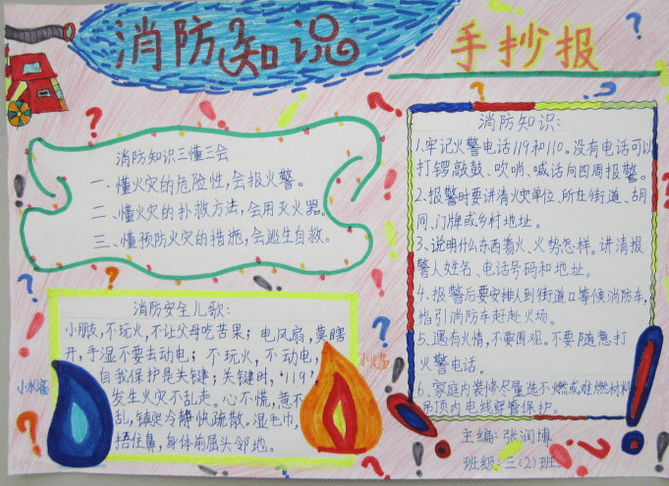 消防知识
手抄报
消防知识三懂三会
一、懂火灾的危险性，会报火警。
二、懂火灾的扑救方法，会用灭火器。
三、懂预防火灾的措施，会逃生自救。
消防安全儿歌：
小朋友，不玩火，不让父母吃苦果；电风扇，莫瞎
开，手湿不要去动电；不玩火，不动电，
自我保护是关键；关键时，'119'，
发生火灾不乱走。心不慌，意不
乱，镇定冷静快疏散。湿毛巾，
捂住鼻，身体前屈头邻地。
小水滴
小火苗
消防知识：
1.牢记火警电话119和110。没有电话可以
打锣敲鼓、吹哨、喊话向四周报警。
2.报警时要讲清火灾单位、所在街道、胡
同、门牌或乡村地址。
3、说明什么东西着火、火势怎样。讲清报
警人姓名、电话号码和地址。
4、报警后要安排人到街道口等候消防车，
指引消防车赶赴火场。
5、遇有火情，不要围观。不要随意打
火警电话。
6、家庭内装修尽量选不燃或难燃材料
吊顶内电线穿管保护。
主编：张润博
班级：三(2)班